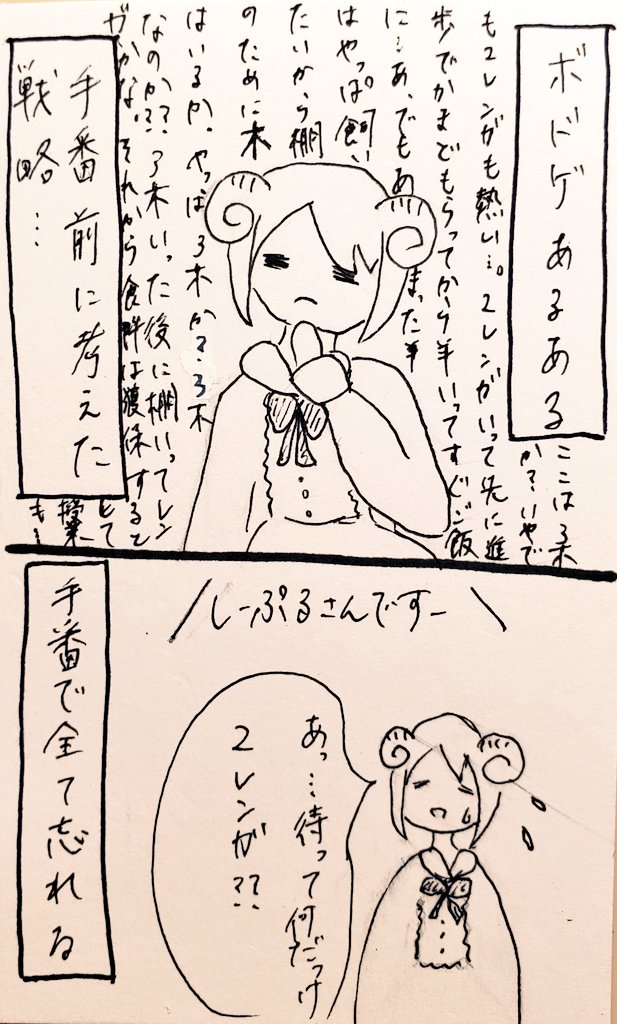 ボドゲあるある
ここは3木
か?いやで
も2レンガも熱い…。2レンガいって先に進
歩でかまどもらってから羊いってすぐご飯
に…あ、でもあまった羊
はやっぱ飼い
たいから棚
のために木
はいるか。やっぱ3木か?3木
なのか??3木いった後に棚いってレン
ガかな。それから食料は獲保すると
して
授業
も…
手番前に考えた
戦略…
しーぷるさんですー
あっ…待って何だっけ
2レンガ??
手番で全て忘れる